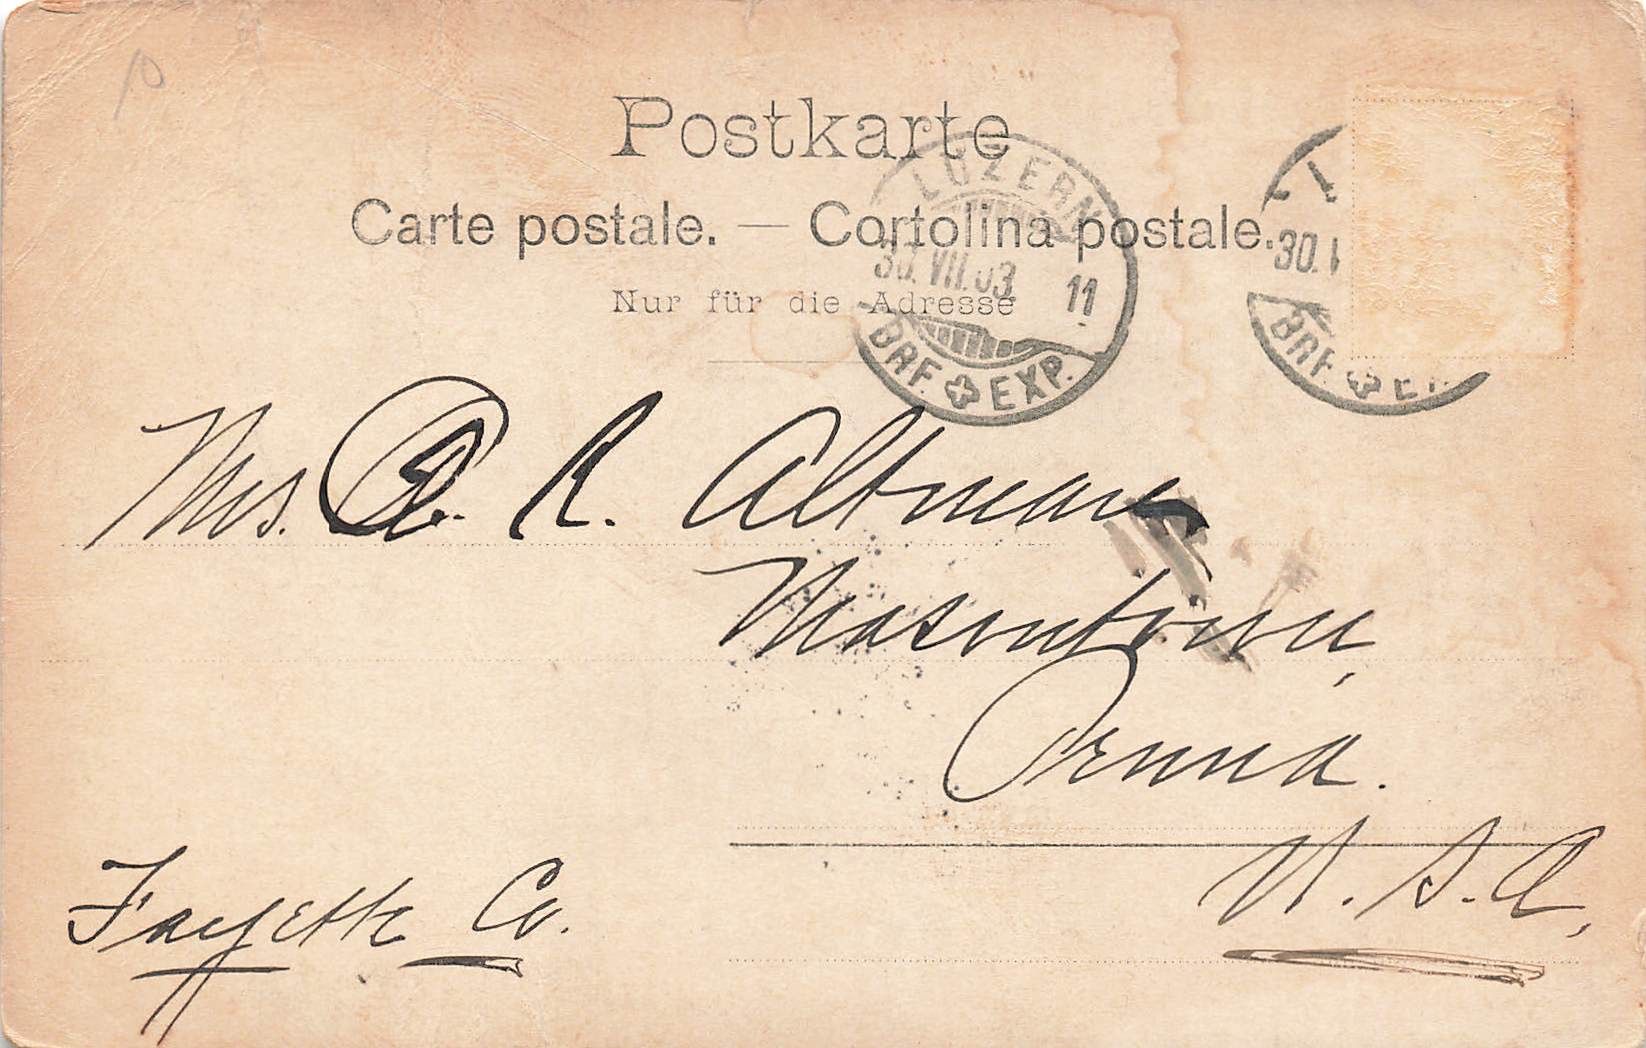 10
Postkarte
Carte postale. — Cortolina postale.
Nur für die Adresse
LUZERN
30. VII. 03. 11
BRF. EXP.
30. V
BRF. E
Mrs. R. Altman
Masontown,
Penna.
U.S.A,
Fayette Co.